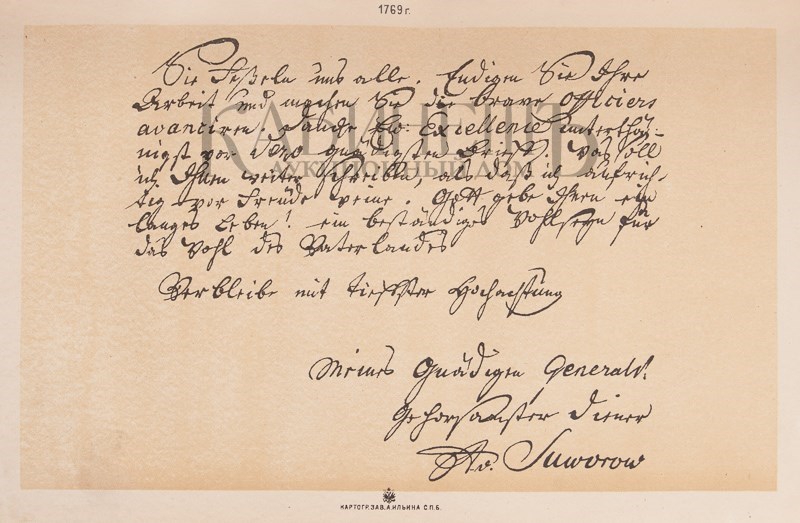 1769 г.
Sie Feßeln uns alle. Endigen Sie Ihre
Arbeit und machen Sie die brave Officiers
avanciren. Danke Ew. Excellence unterthä-
nigst vor dero gnädigsten Brieff. Was soll
ich Ihnen weiter schreiben, als daß ich aufrich-
tig vor Freude weine. Gott gebe Ihnen ein
langes Leben! ein beständiges Wohlseyn für
das Wohl des Vaterlandes
Verbleibe mit tieffster Hochachtung
Meines Gnädigen Generals
Gehorsamster Diener
Suworow
КАБИНЕТЪ
АУКЦИОННЫЙ ДОМ
КАРТОГР. ЗАВ. А. ИЛЬИНА С.П.Б.